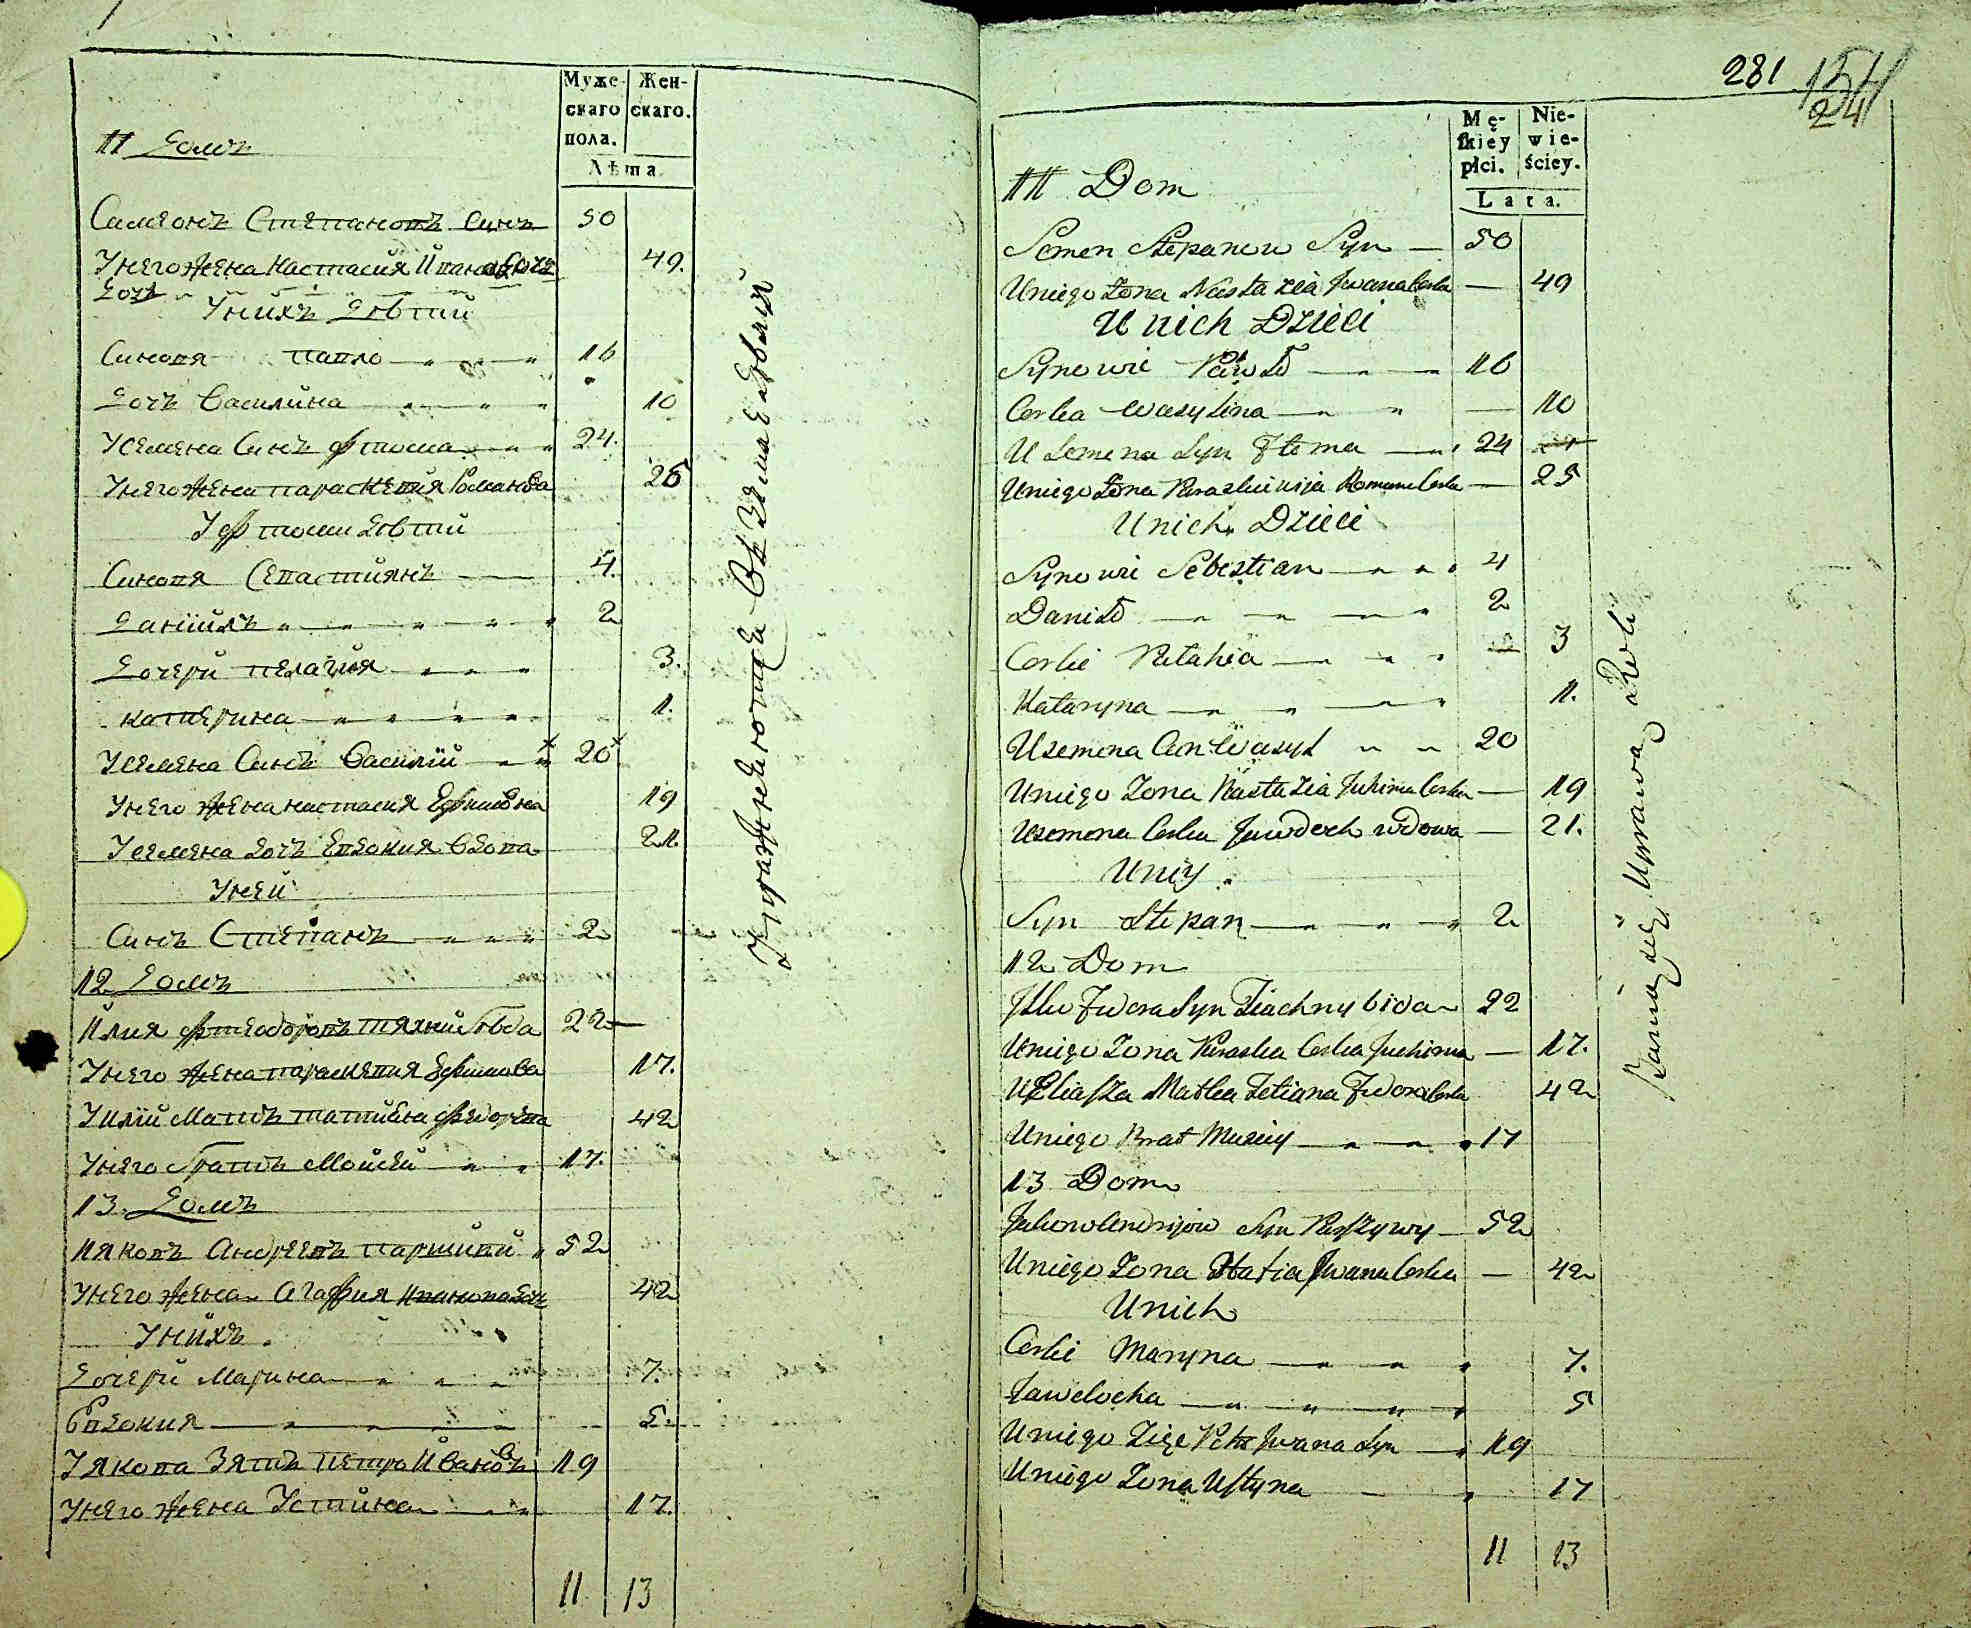 Муже-
скаго
пола.
Жен-
скаго.
Лѣта.
11 Домъ
Самеонъ Степановъ Синъ 50
Унего жена Настасия Иванова Дочь 49.
Дочь
Унихъ Дѣтий
Синовя павло 16
Дочъ Василина 10
Усемена Синъ фтома 24.
Унего жена параскевия Романова 25
У фтоми дѣтий
Синовя Севастиянъ 4.
Даниилъ 2
Дочери пелагия 3.
катерина 1.
Усемена Синъ Василий 20
Унего жена настасия Ефимовна 19
Усемена дочъ Евдокия вдова 21.
Уней
Синъ Степанъ 2
12 Домъ
Илия фтеодоровъ 22
Унего жена параскевия Ефимова 17.
Уилии Мать татияна федорова 42
Унего братъ Мойсей 17.
13. Домъ
Ияковъ Андреевъ паршивий 52
Унего жена Агафия Иванова дочь 42
Унихъ
Дочери Марина 7.
Евдокия 5.
Уякова Зять петро Ивановъ 19
Унего жена Устина 17.
11 13
Упражняются Въ Земледѣлий
281
24
Mę-
skiey
płci.
Nie-
wie-
ściey.
Lata.
11 Dom
Semen Stepanow Syn 50
Uniego Zona Nastazia Jwana Corka 49
U nich Dzieci
Synowie Pawło 16
Corka Wasylina 10
U Semena Syn Ftoma 24
Uniego Zona Paraskiewija Romana Corka 25
Unich Dzieci
Synowie Sebestian 4
Daniło 2
Corki Pelahia 3
Kataryna 1.
Usemena Wasyl 20
Uniego Zona Nastazia Juhima Corka 19
Usemena Corka Jawdoch wdowa 21.
Uniy
Syn Stepan 2
12 Dom
Fwdora Syn Tiachnybida 22
Uniego Zona Paraska Corka Juchima 17.
UEliasza Matka Tetiana Fwdora Corka 42
Uniego Brat Musiiy 17
13 Dom
Jakow Andrijow Syn Parszywy 52
Uniego Zona Hatia Jwana Corka 42
Unich
Corki Maryna 7.
Jawdocha 5
Uniego Zięc Petr Jwana Syn 19
Uniego Zona Ustyna 17
11 13
Bawią się Uprawą Roli